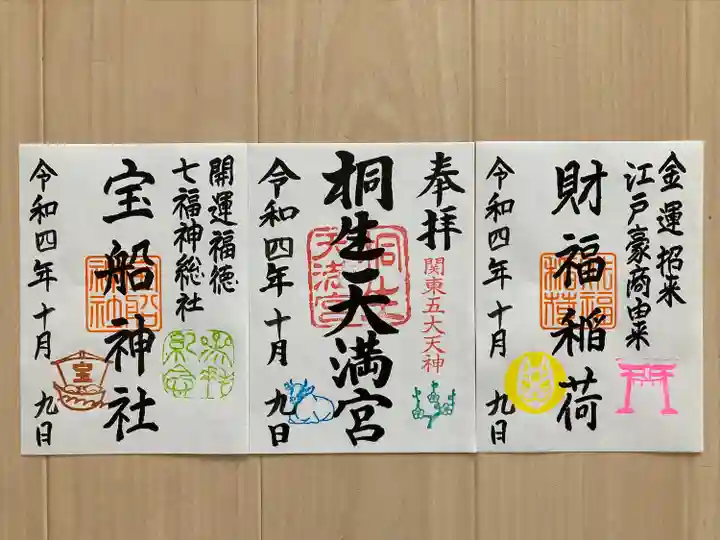 奉拝
金運招来
江戸豪商由来
財福稲荷
令和四年十月九日
関東五大天神
桐生天満宮
令和四年十月九日
開運福徳
七福神総社
宝船神社
令和四年十月九日
宝